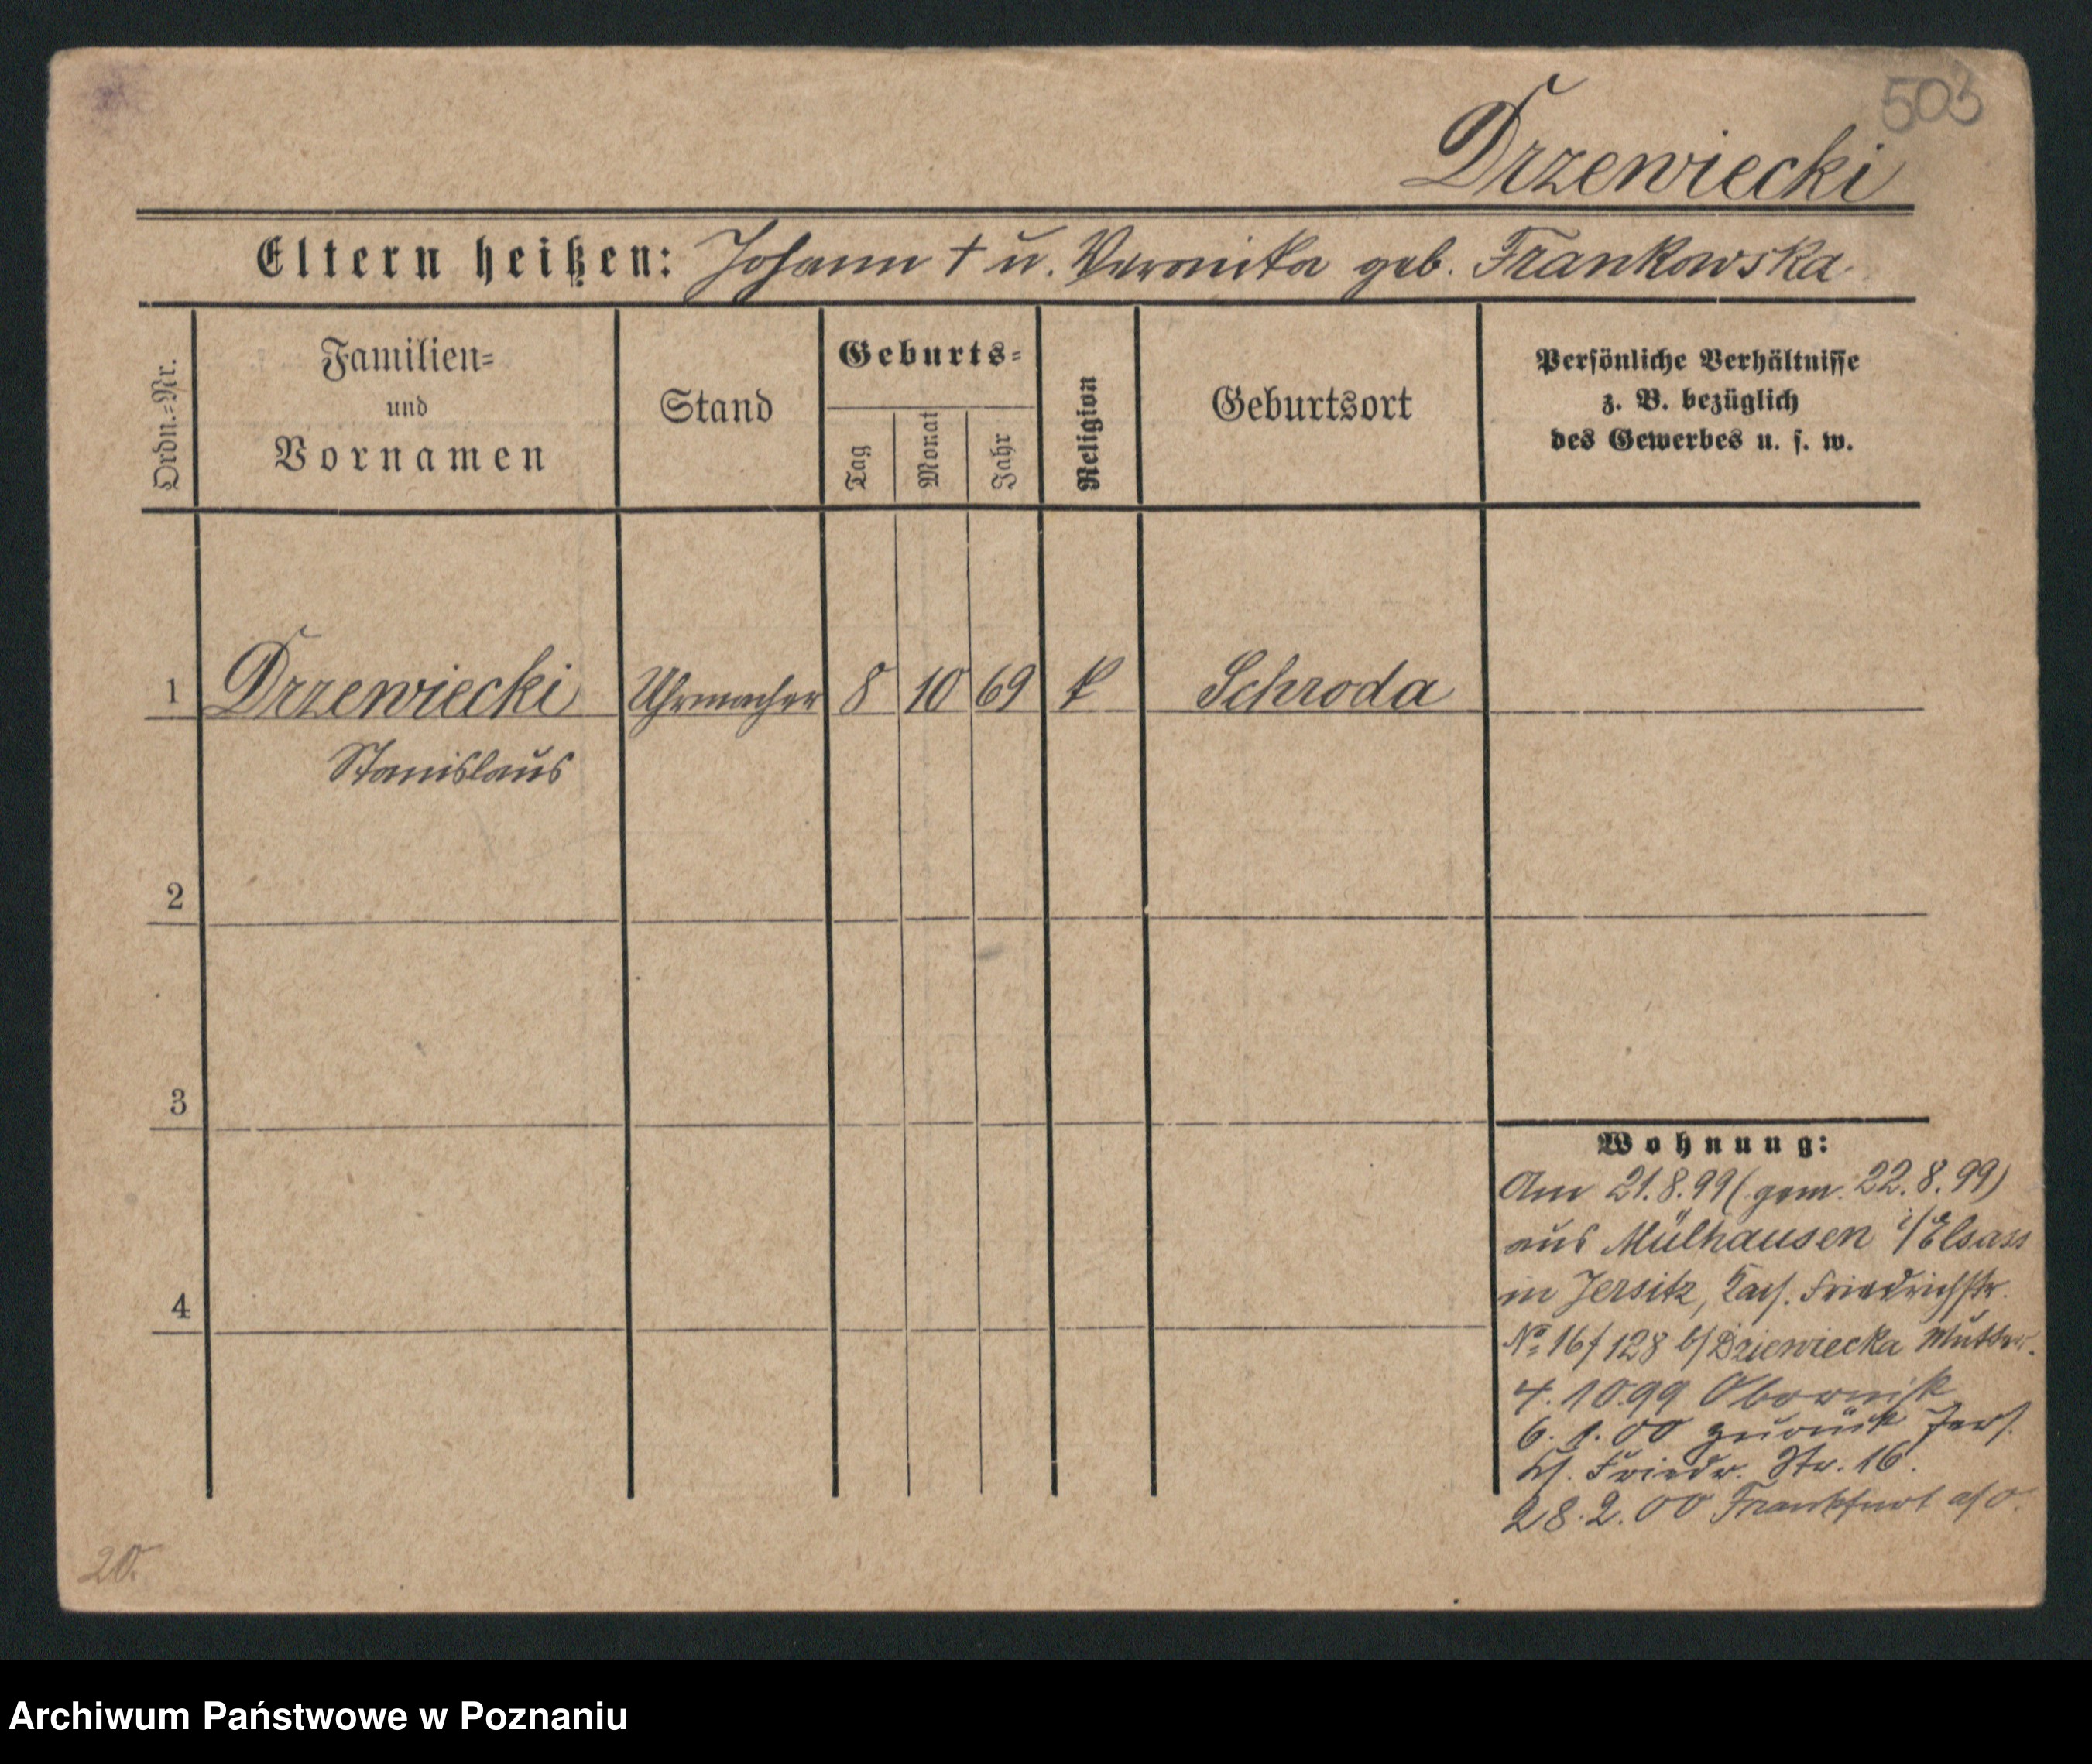 503
Drzewiecki
Eltern heißen: Johann † u. Veronika geb. Frankowska
Ordn.=Nr.
Familien=
und
Vornamen
Stand
Geburts=
Tag
Monat
Jahr
Religion
Geburtsort
Persönliche Verhältnisse
z. B. bezüglich
des Gewerbes u. s. w.
1 Drzewiecki Uhrmacher 8 10 69 k Schroda
Stanislaus
2
3
4
Wohnung:
Am 21.8.99 (gem. 22.8.99)
aus Mülhausen i/Elsass
in Jersitz, Kais. Friedrichstr.
No 16/128 b/Drzewiecka Mutter.
4.10.99 Obornik
6.1.00 zurück Jers.
Friedr. Str. 16.
28.2.00 Frankfurt a/O.
20.
Archiwum Państwowe w Poznaniu